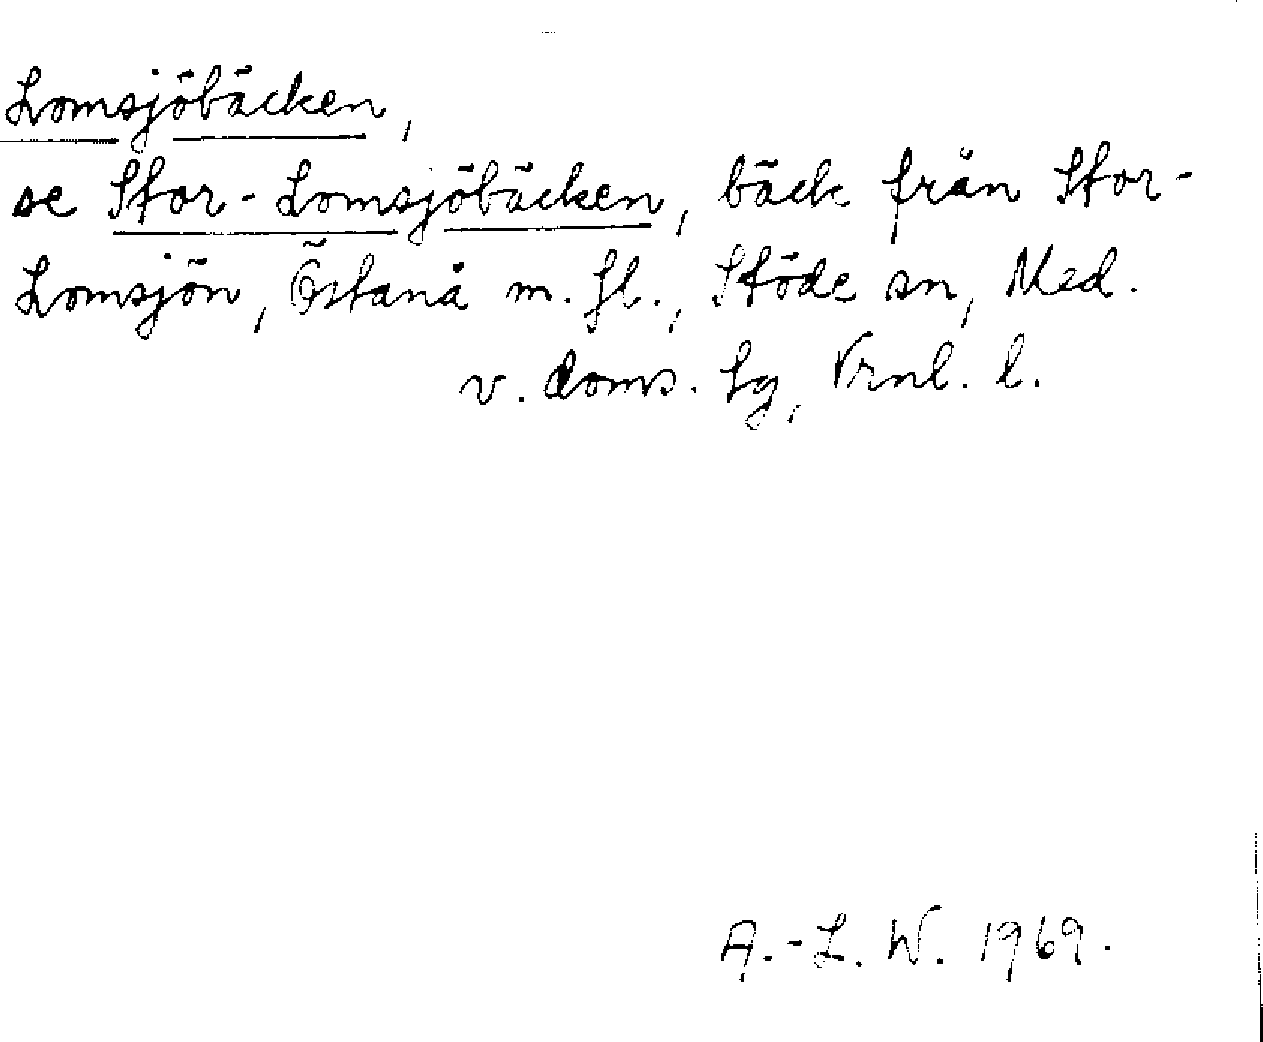 Lomsjöbäcken,
se Stor-Lomsjöbäcken, bäck från Stor-
Lomsjön, Östanå m. fl., Stöde sn, Med.
v. doms. sg, Vrnl. l.
A.-L. W. 1969.